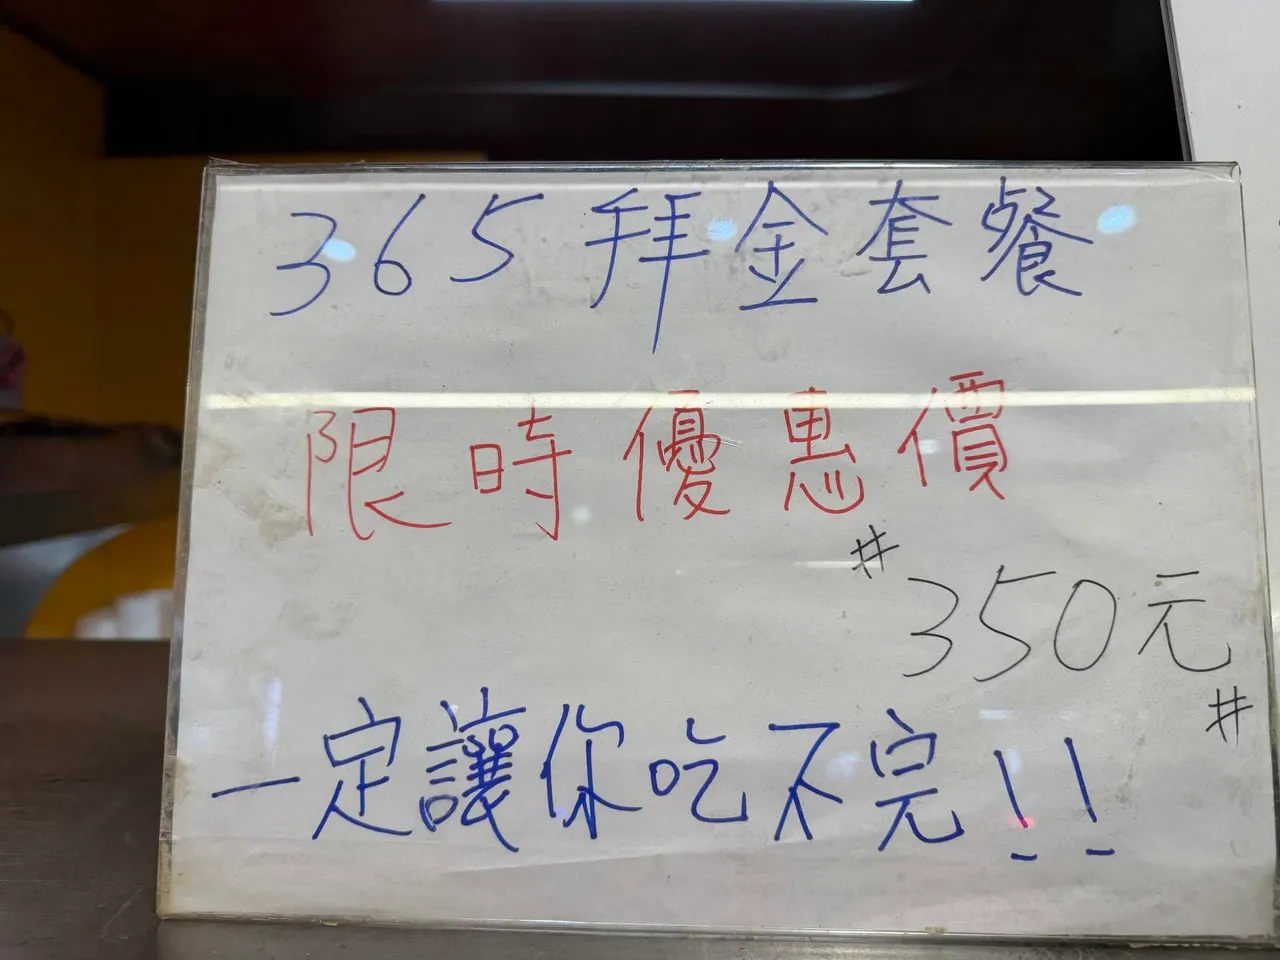 365拜金套餐
限時優惠價
#350元#
一定讓你吃不完!!